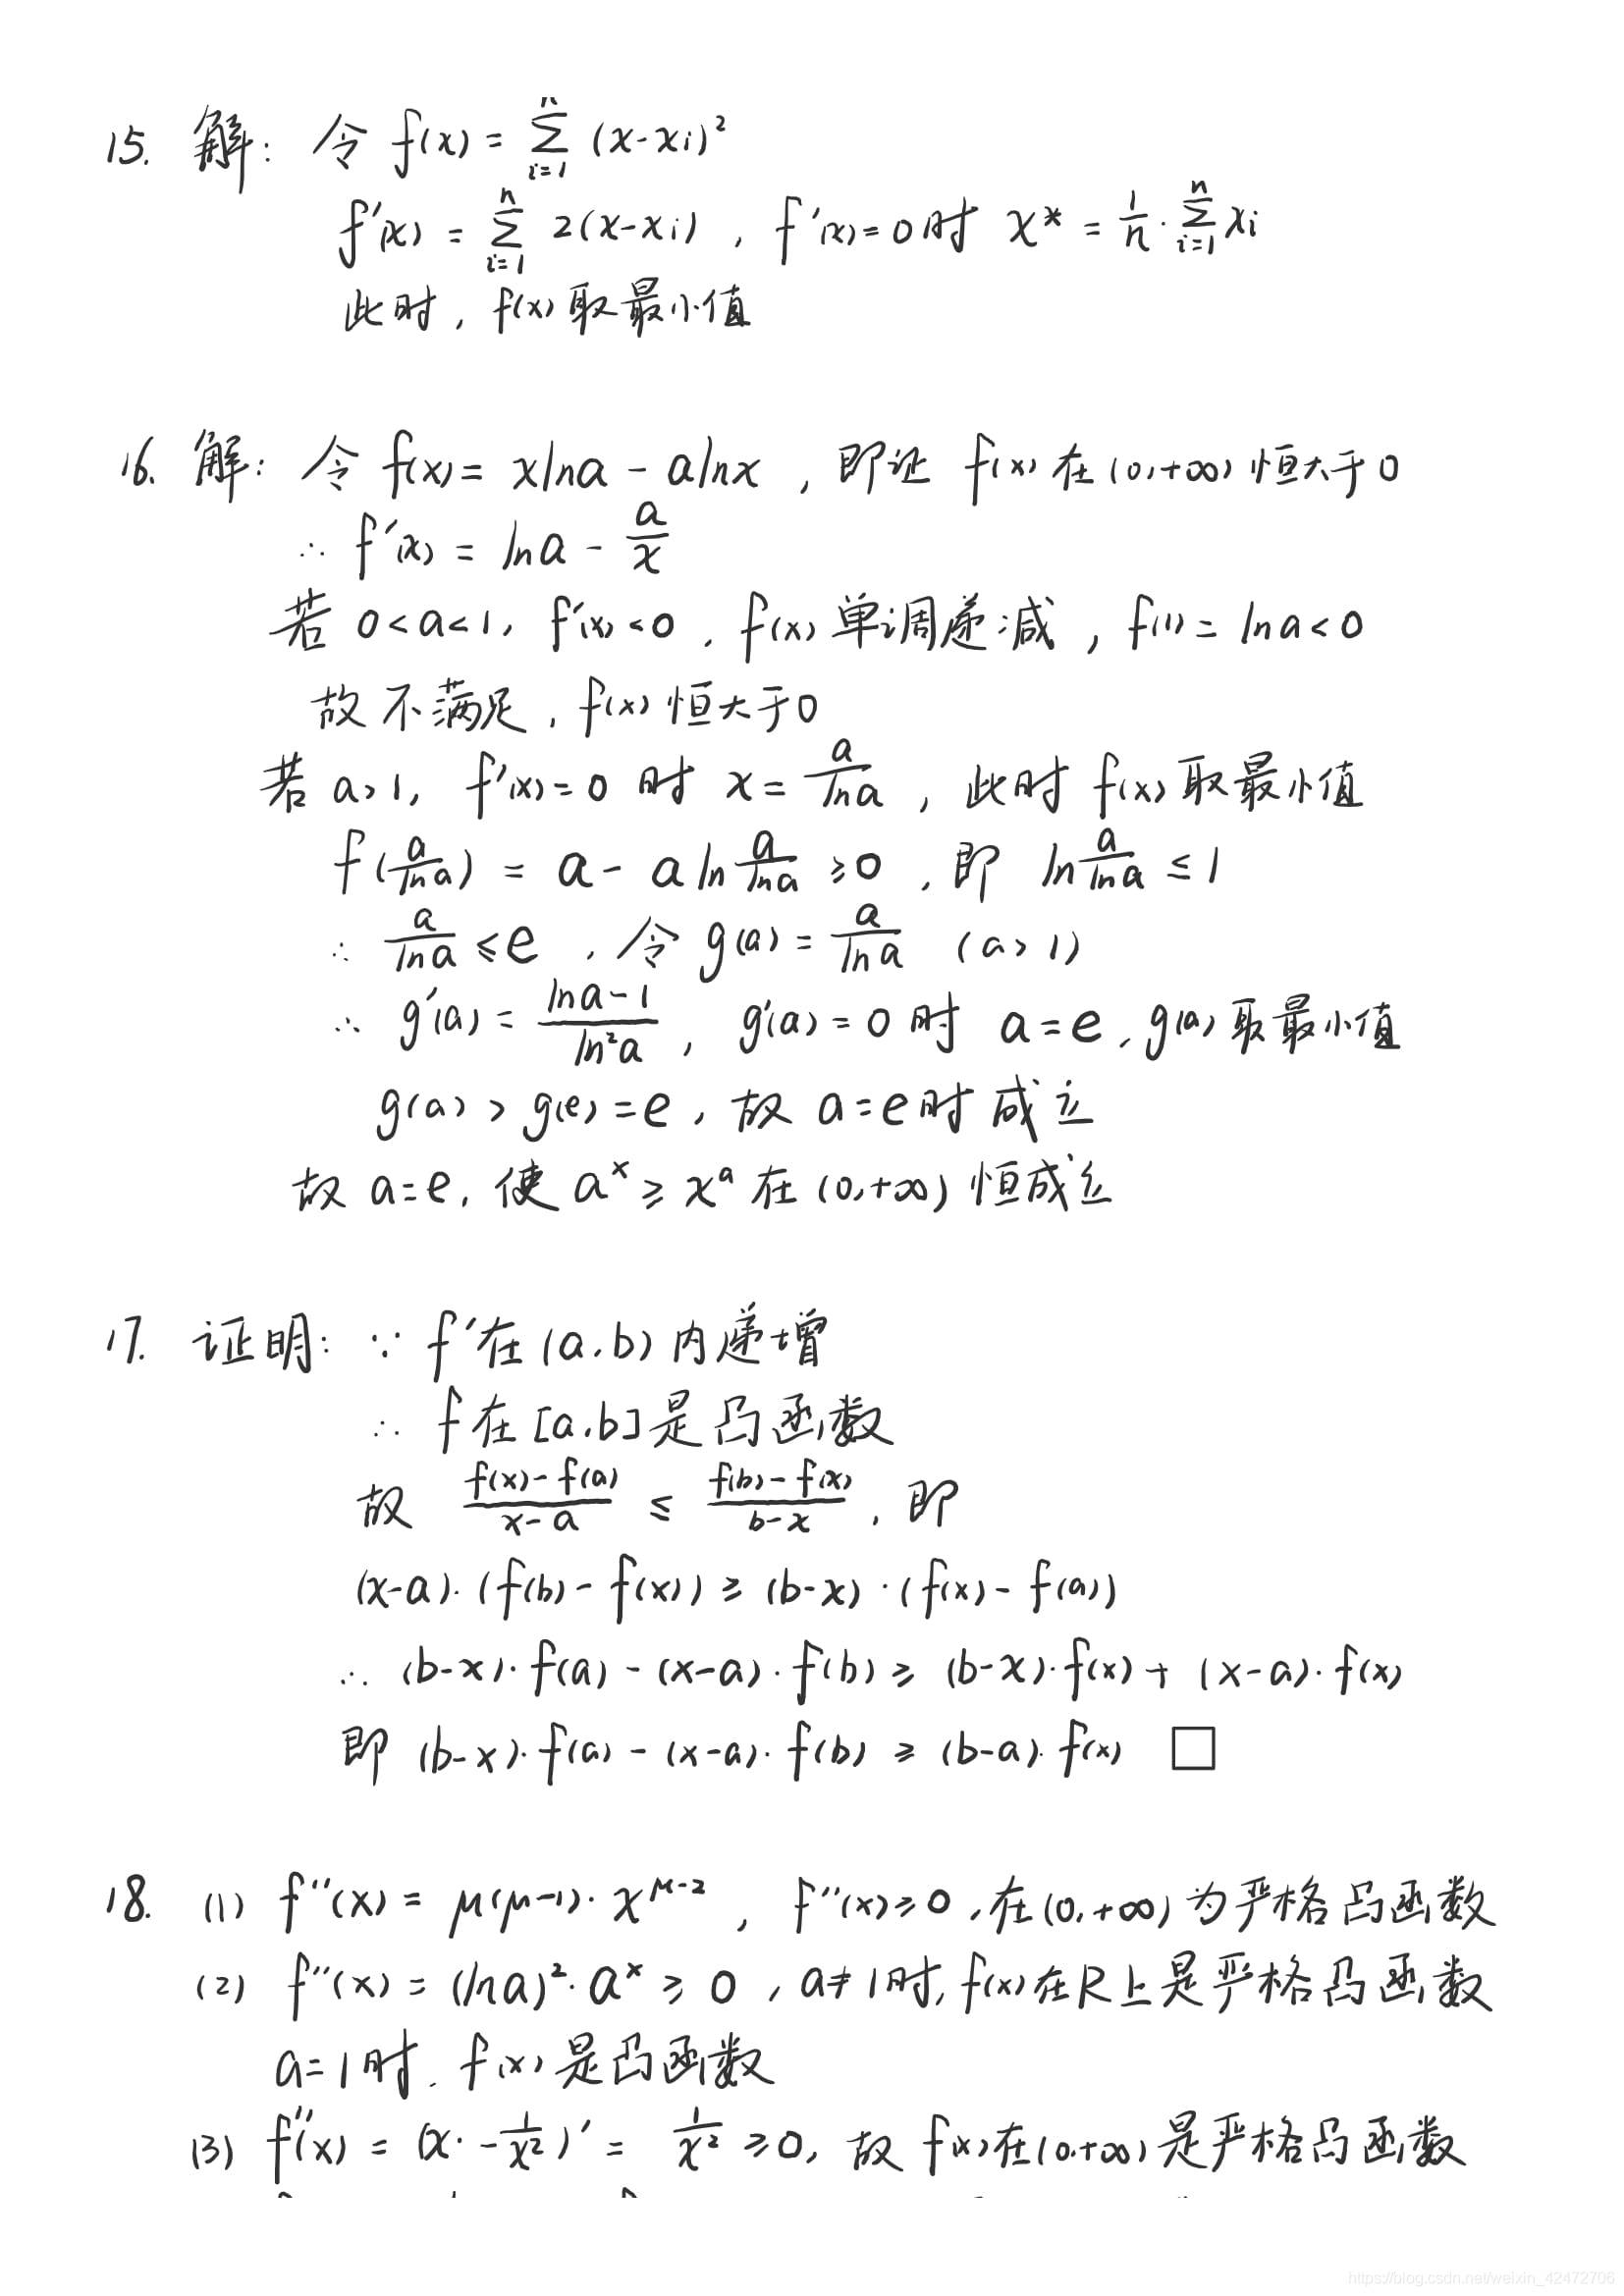 15. 解: 令 f(x) = ∑_{i=1}^{n} (x-xᵢ)²
f'(x) = ∑_{i=1}^{n} 2(x-xᵢ) , f'(x)=0时 x* = 1/n · ∑_{i=1}^{n} xᵢ
此时, f(x)取最小值
16. 解: 令 f(x) = xlna - alnx , 即证 f(x) 在(0,+∞)恒大于0
∴ f'(x) = lna - a/x
若 0<a<1, f'(x)<0 , f(x)单调递减 , f(1) = lna<0
故不满足, f(x)恒大于0
若 a>1, f'(x)=0 时 x = a/lna , 此时 f(x)取最小值
f(a/lna) = a - aln a/lna ≥0 , 即 ln a/lna ≤ 1
∴ a/lna ≤ e , 令 g(a) = a/lna (a>1)
∴ g'(a) = (lna-1)/ln²a , g'(a)=0时 a=e , g(a)取最小值
g(a) > g(e) = e , 故 a=e时成立
故 a=e, 使 aˣ ≥ xᵃ 在(0,+∞)恒成立
17. 证明: ∵ f'在(a,b)内递增
∴ f在[a,b]是凸函数
故 (f(x)-f(a))/(x-a) ≤ (f(b)-f(x))/(b-x) , 即
(x-a)·(f(b)-f(x)) ≥ (b-x)·(f(x)-f(a))
∴ (b-x)·f(a) - (x-a)·f(b) ≥ (b-x)·f(x) + (x-a)·f(x)
即 (b-x)·f(a) - (x-a)·f(b) ≥ (b-a)·f(x) □
18. (1) f''(x) = μ(μ-1)·x^{μ-2} , f''(x)≥0 , 在(0,+∞)为严格凸函数
(2) f''(x) = (lna)²·aˣ ≥ 0 , a≠1时, f(x)在R上是严格凸函数
a=1时. f(x)是凸函数
(3) f''(x) = (x·-1/x²)' = 1/x² ≥0, 故 f(x)在(0,+∞)是严格凸函数
https://blog.csdn.net/weixin_42472706